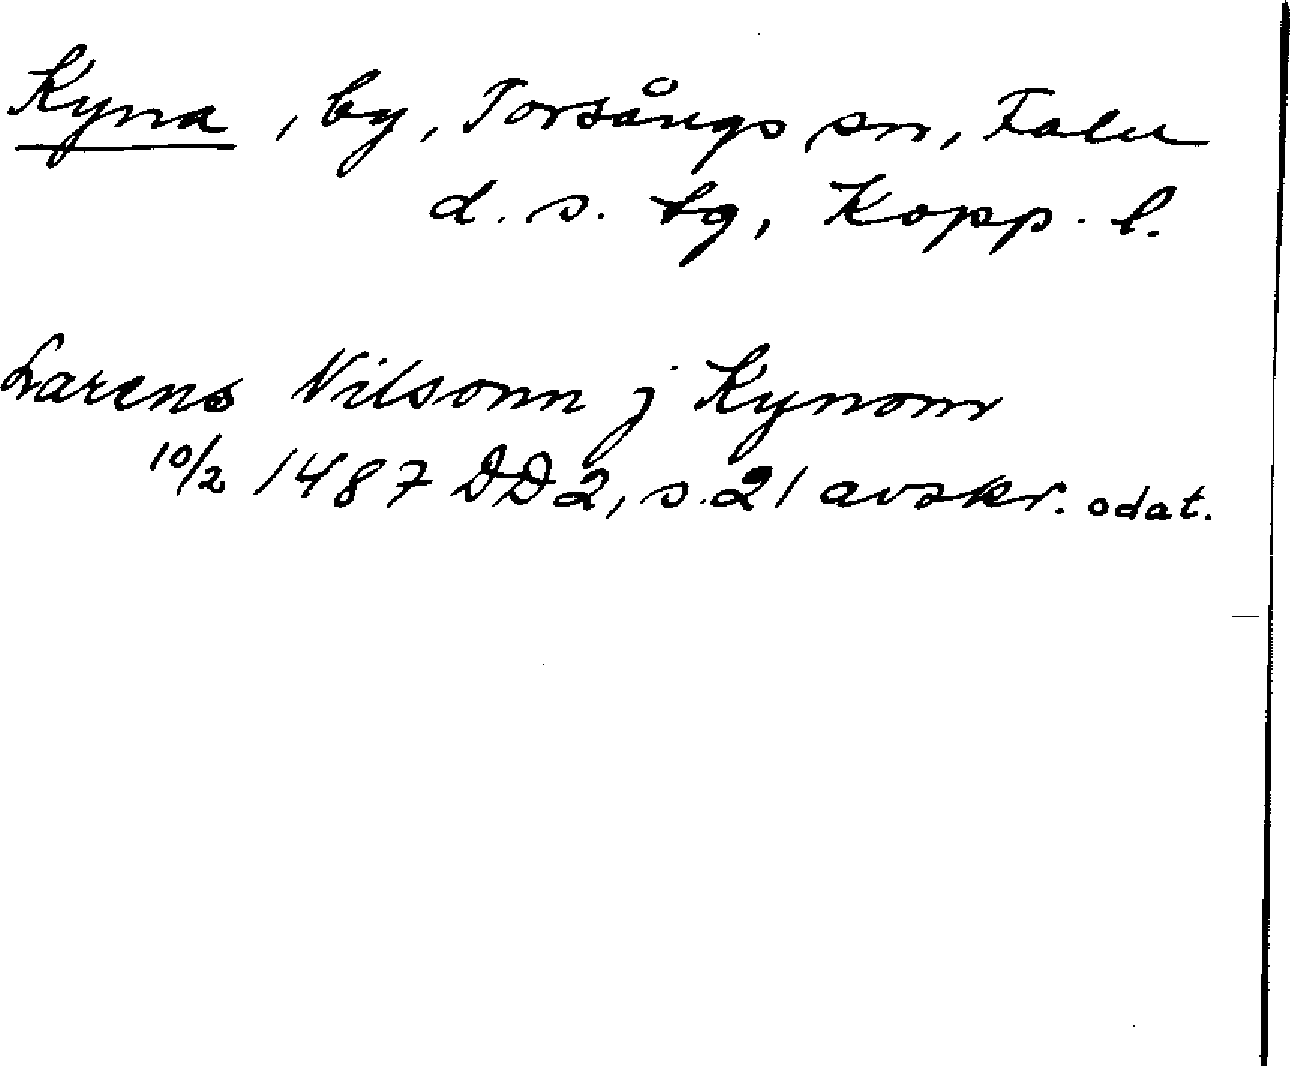 Kyna, by, Torsångs sn, Falu
d. s. tg, Kopp. l.
Larens Nilsonn j Kynom
10/2 1487 DD2, s. 21 avskr. odat.